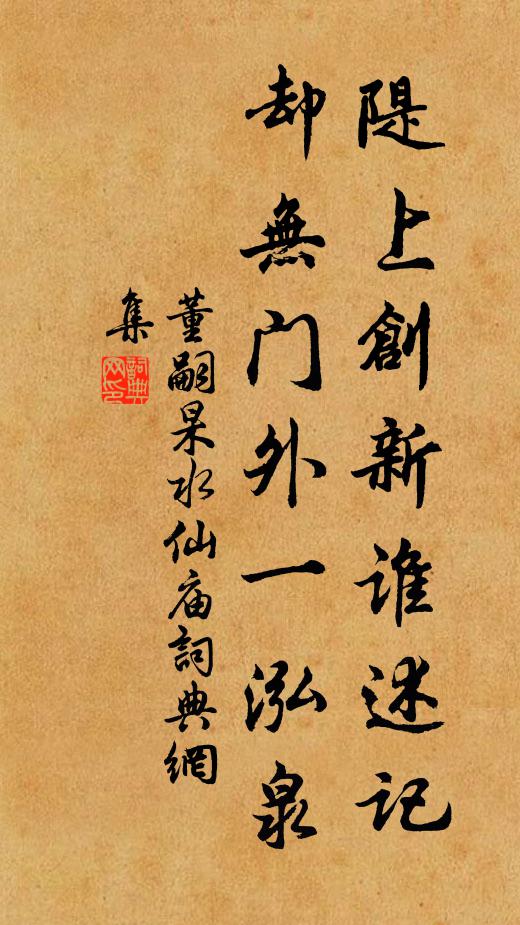 隄上創新誰述記
却無門外一泓泉
董嗣杲水仙庙詞典網
集
詞典网印